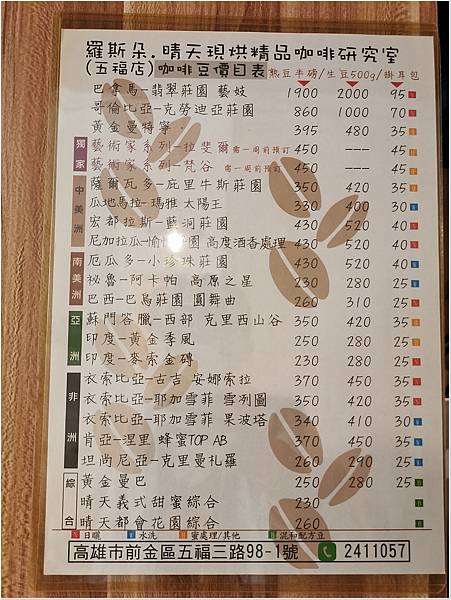 羅斯朵.晴天現烘精品咖啡研究室
(五福店)咖啡豆價目表 熟豆半磅/生豆500g/掛耳包
巴拿馬-翡翠莊園 藝妓 1900 2000 95
哥倫比亞-克勞迪亞莊園 860 1000 70
黃金曼特寧 395 480 35
獨家
藝術家系列-拉斐爾 需一周前預訂 450 --- 45
藝術家系列-梵谷 需一周前預訂 450 --- 45
中美洲
薩爾瓦多-庇里牛斯莊園 350 420 35
瓜地馬拉-瑪雅 太陽王 330 400 30
宏都拉斯-藍洞莊園 430 520 40
尼加拉瓜-愉 莊園 高度酒香處理 430 520 40
南美洲
厄瓜多-小珍珠莊園 430 520 40
祕魯-阿卡帕 高原之星 230 280 25
巴西-巴烏莊園 圓舞曲 260 310 25
亞洲
蘇門答臘-西部 克里西山谷 350 420 35
印度-黃金季風 250 280 25
印度-麥索金磚 230 280 25
非洲
衣索比亞-古吉 安娜索拉 370 450 35
衣索比亞-耶加雪菲 雪列圖 350 420 35
衣索比亞-耶加雪菲 果波塔 340 410 30
肯亞-涅里 蜂蜜TOP AB 370 450 35
坦尚尼亞-克里曼札羅 260 290 25
綜合
黃金曼巴 250 280 25
晴天義式甜蜜綜合 230
晴天都會花園綜合 260
日曬 水洗 蜜處理/其他 混和配方豆
高雄市前金區五福三路98-1號 2411057